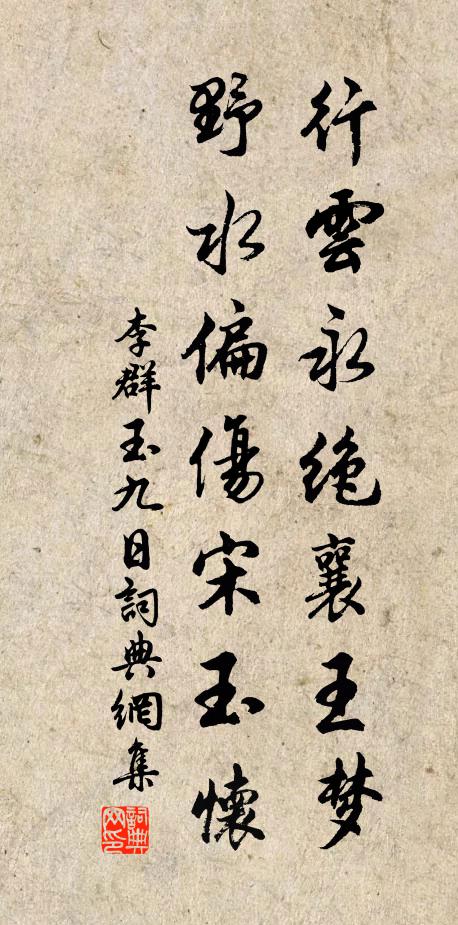 行雲永绝襄王梦
野水偏傷宋玉懷
李群玉九日詞典網集
詞典网印